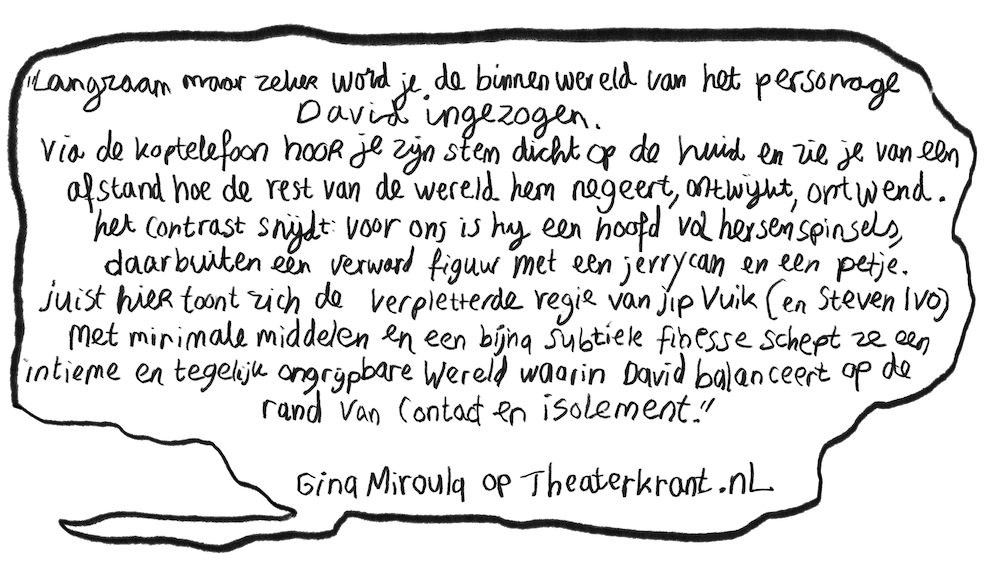 "Langzaam maar zeker word je de binnenwereld van het personage
David ingezogen.
Via de koptelefoon hoor je zijn stem dicht op de huid en zie je van een
afstand hoe de rest van de wereld hem negeert, ontwijkt, ontwend.
het contrast snijdt: voor ons is hij een hoofd vol hersenspinsels,
daarbuiten een verward figuur met een jerrycan en een petje.
juist hier toont zich de verpletterde regie van Jip Vuik (en Steven Ivo)
Met minimale middelen en een bijna subtiele finesse schept ze een
intieme en tegelijk ongrijpbare wereld waarin David balanceert op de
rand van contact en isolement."
Gina Miroula op Theaterkrant.nl